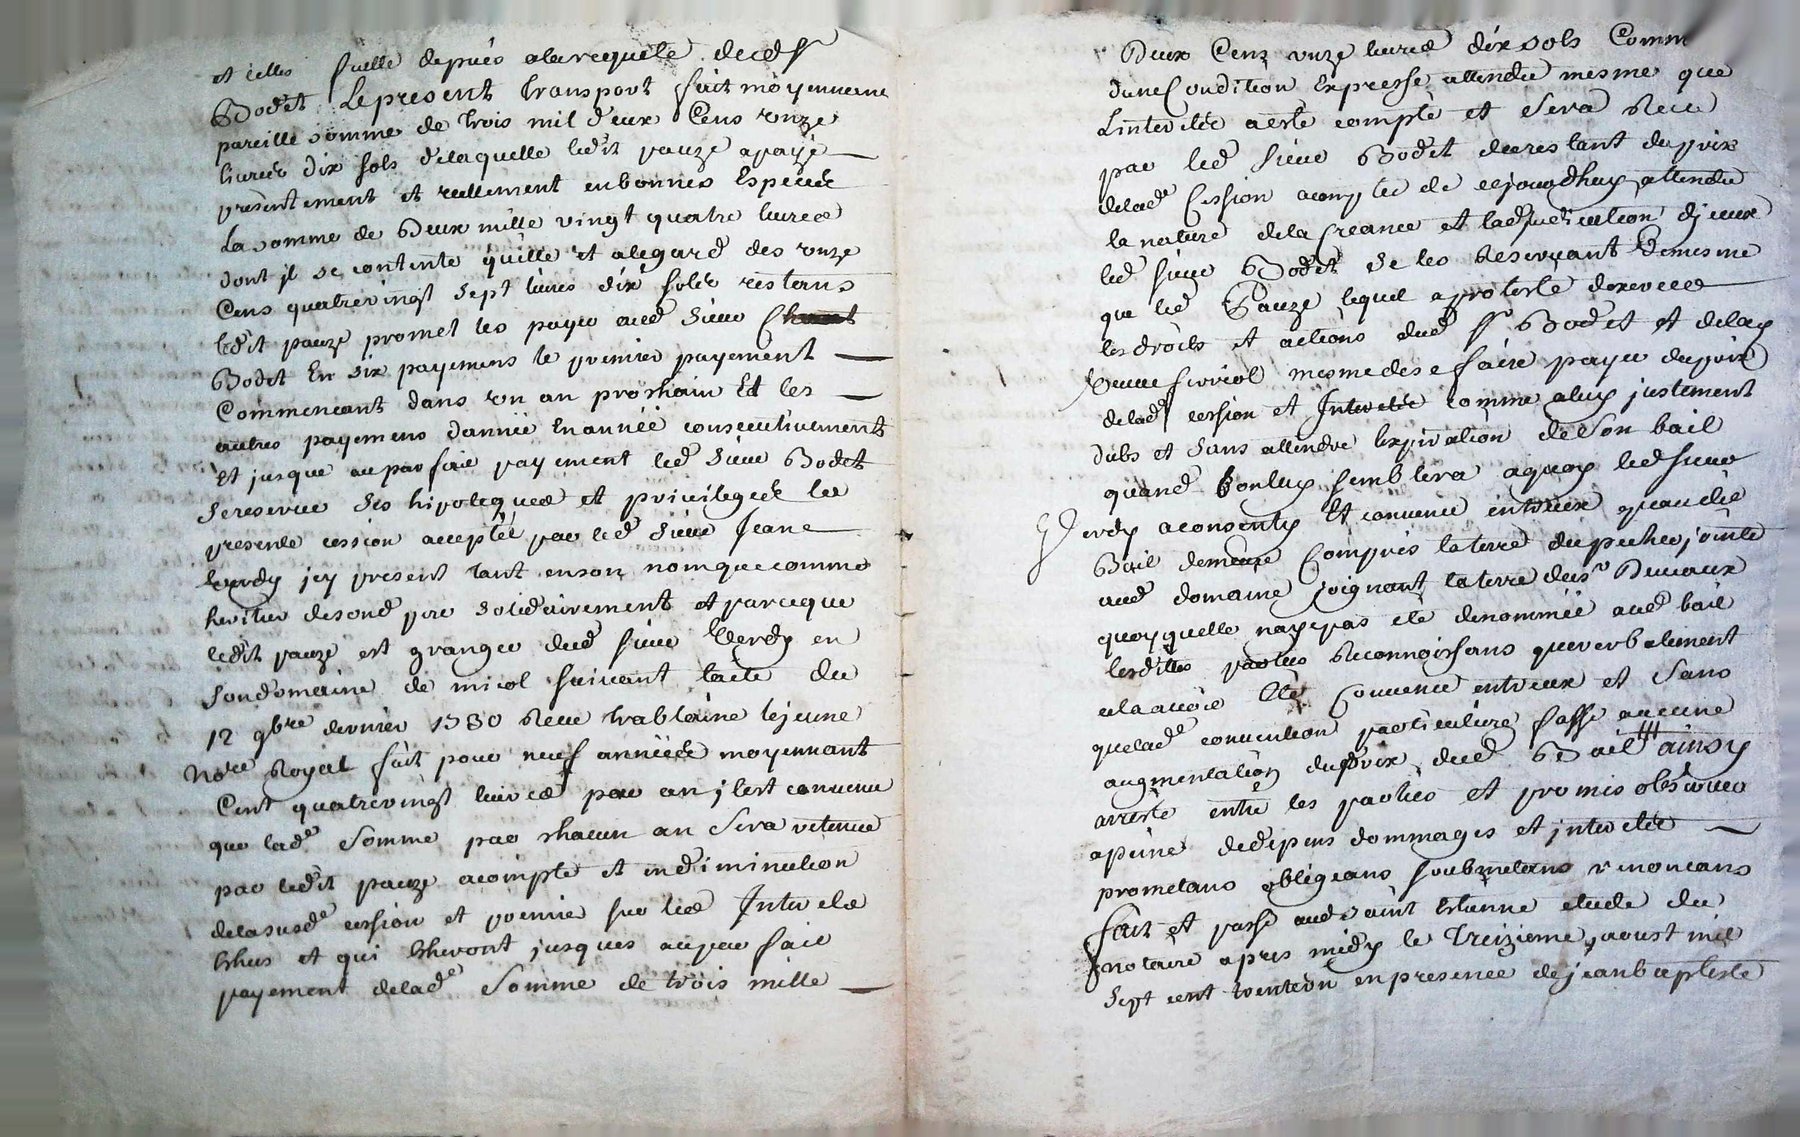 et celles faitte depuis alarequete dud Sr
Bodet Lepresent transport fait moyennant
pareille somme de trois mil deux Cens onze
livres dix sols delaquelle ledit pauze apaÿé
presentement et reellement enbonnes Especes
La somme de Deux mille vingt quatre livres
dont jl se contente quitte et alegard des onze
Cens quatrevingt sept livres dix solz restans
ledit pauze promet les payer aud sieur
Bodet En six payemens le premier payement
Commencant dans un an prochain Et les
autres payemens dannée Enannée consecutivement
Et jusque auparfait payement led sieur Bodet
sereserve ses hipoteques et privileges la
presente cession acceptée par led sieur Jean
Verdy jcy present tant enson nom que comme
heritier desond pere solidairement et parceque
ledit pauze est granger dud sieur Verdy en
sondomaine de micol suivant lacte du
12 9bre dernier 1730 Receu trablaine lejeune
Nore Royal fait pour neuf années moyennant
Cent quatrevingt livres par an jlest convenu
que lade somme par chacun an sera retenue
par ledit pauze acompte et endiminution
delasusde cession et premier sur les Interets
Echus et qui Echeront jusques auparfait
payement delade somme de trois mille
Deux Cens onze livres dix sols Comm
dune Condition Expresse attendu mesme que
Linterest aesté compté et sera Receu
par led sieur Bodet durestant duprix
delade Cession acompter de cejourdhuy attendu
la nature dela Creance et ladjudication djceux
led sieur Bodet se les Reservant Demesme
que led Pauze lequel aprotesté dexercer
les droits et actions dud Sr Bodet et delad
Veuve mesme dese faire payer duprix
delade cession et Interets comme aluy justement
dubs et sans attendre lexpiration deson bail
quand bonluy semblera aquoy led sieur
Verdy aconsenty Et convenu entreux quaudit
Bail demeure Compris laterre dupecher jointe
aud domaine joignant laterre dusr Devaux
quoyquelle nayepas eté denommée aud bail
lesdittes parties Reconnoissans queverbalement
elleavoit Eté Convenu entreux et sans
quelade convention particuliere fasse aucune
augmentation duprix dud Bail ainsy
arresté entre les parties et promis observer
apeine dedepens dommages et jnterets
prometans obligeans soubmetans renoncans
fait et passé aud saint Etienne etude du
notaire apres midy le Treizieme aoust mil
sept cent trenteun enpresence dejeanbaptiste